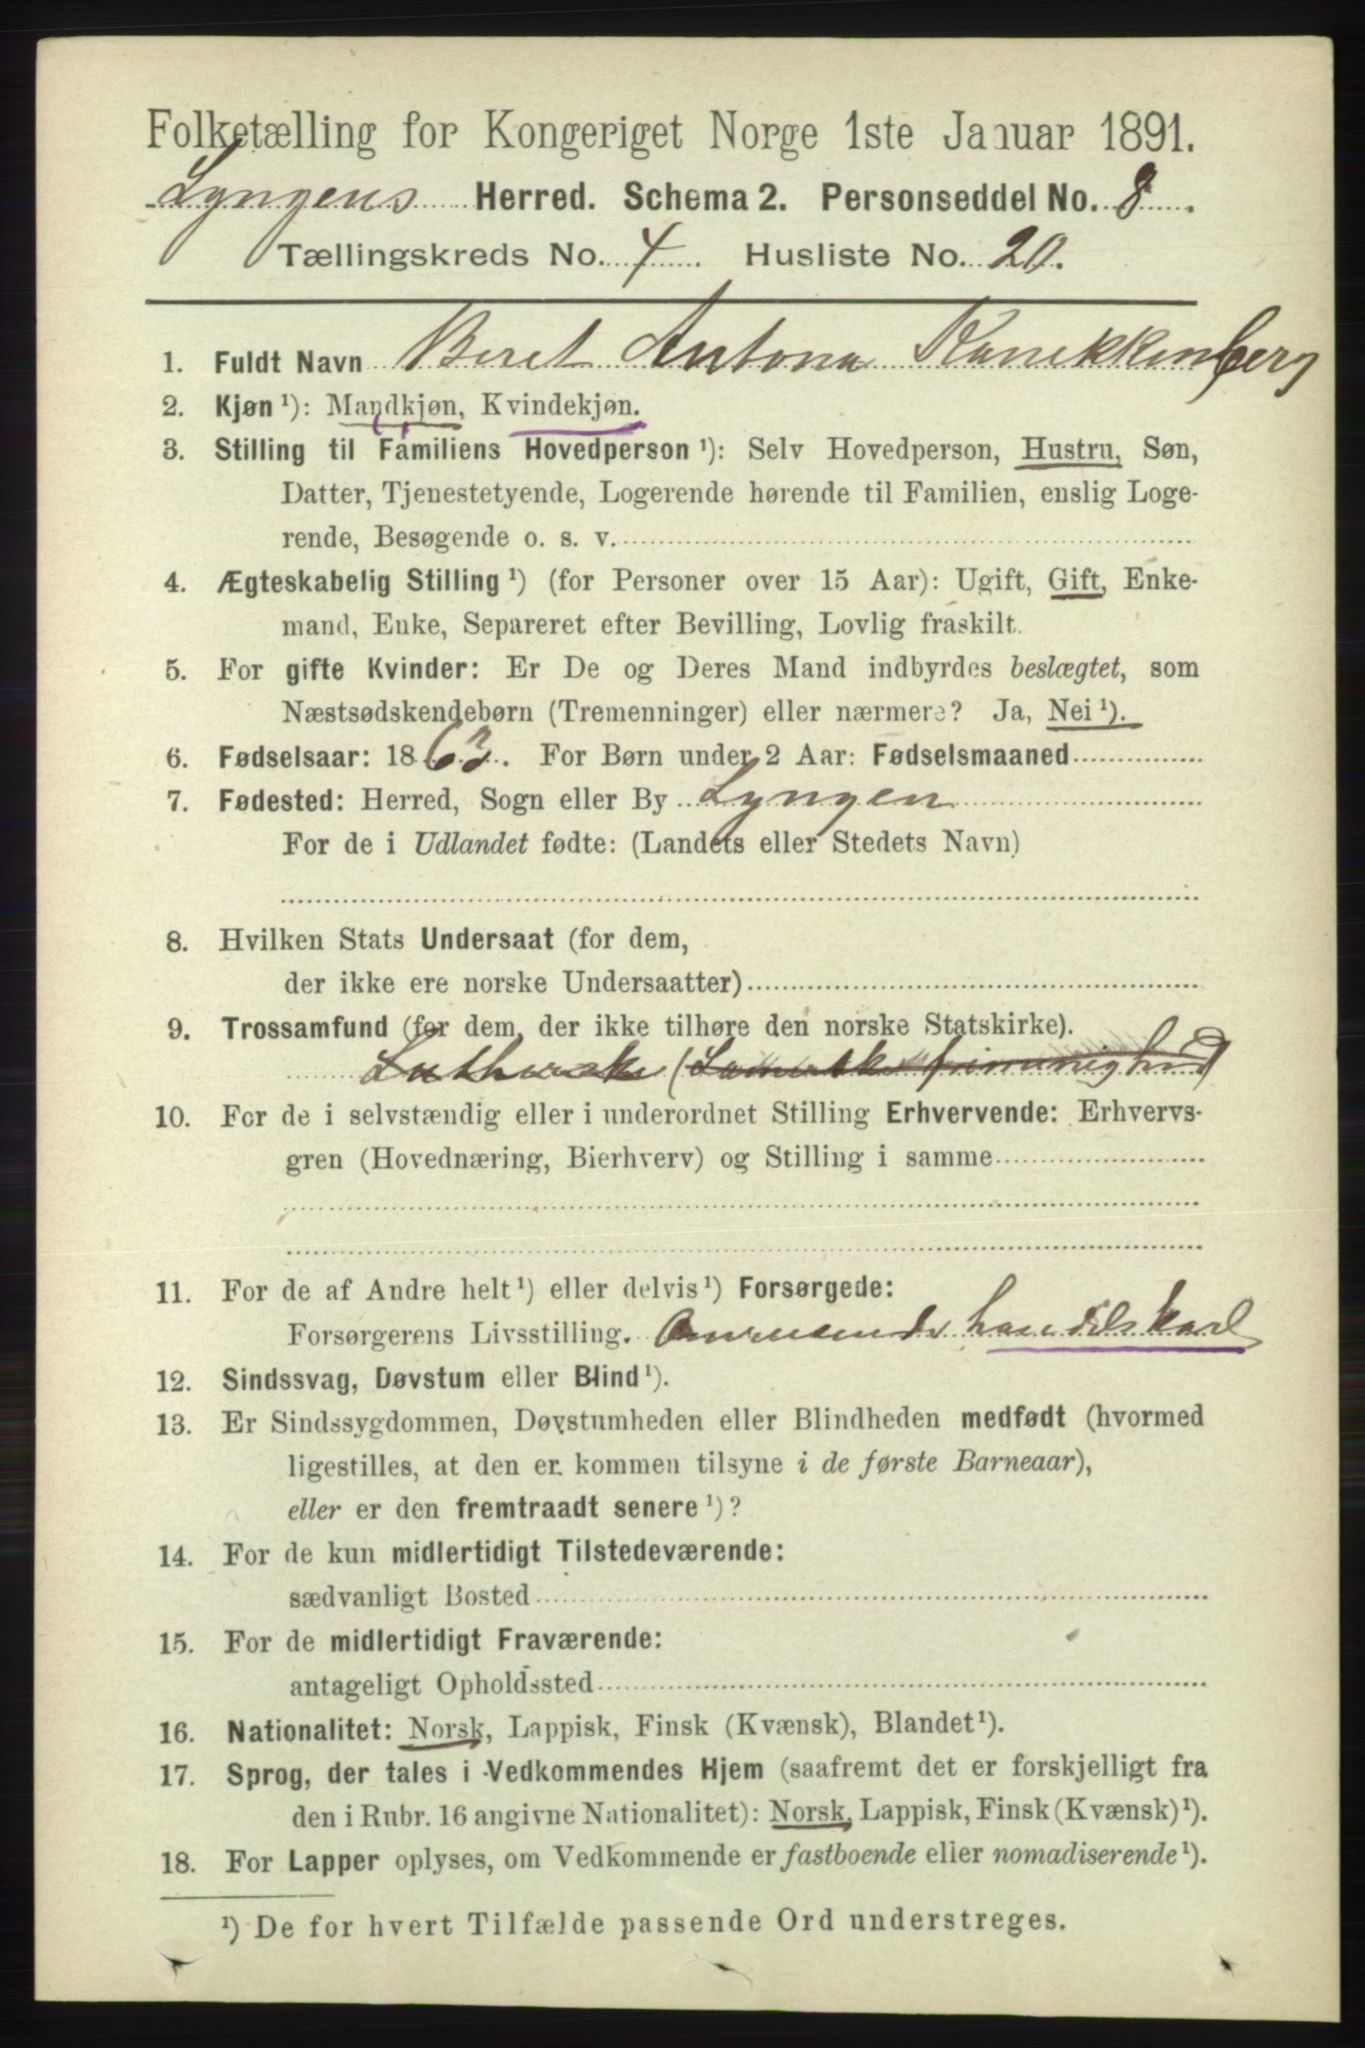 Folketælling for Kongeriget Norge 1ste Januar 1891.
Lyngens Herred. Schema 2. Personseddel No. 8.
Tællingskreds No. 4 Husliste No. 20.
1. Fuldt Navn Beret Antona
2. Kjøn ¹): Mandkjøn, Kvindekjøn.
3. Stilling til Familiens Hovedperson ¹): Selv Hovedperson, Hustru, Søn,
Datter, Tjenestetyende, Logerende hørende til Familien, enslig Loge-
rende, Besøgende o. s. v.
4. Ægteskabelig Stilling ¹) (for Personer over 15 Aar): Ugift, Gift, Enke-
mand, Enke, Separeret efter Bevilling, Lovlig fraskilt.
5. For gifte Kvinder: Er De og Deres Mand indbyrdes beslægtet, som
Næstsødskendebørn (Tremenninger) eller nærmere? Ja, Nei ¹).
6. Fødselsaar: 1863. For Børn under 2 Aar: Fødselsmaaned
7. Fødested: Herred, Sogn eller By Lyngen
For de i Udlandet fødte: (Landets eller Stedets Navn)
8. Hvilken Stats Undersaat (for dem,
der ikke ere norske Undersaatter)
9. Trossamfund (for dem, der ikke tilhøre den norske Statskirke).
Lutherske
10. For de i selvstændig eller i underordnet Stilling Erhvervende: Erhvervs-
gren (Hovednæring, Bierhverv) og Stilling i samme
11. For de af Andre helt ¹) eller delvis ¹) Forsørgede:
Forsørgerens Livsstilling. handelskarl
12. Sindssvag, Døvstum eller Blind ¹).
13. Er Sindssygdommen, Døvstumheden eller Blindheden medfødt (hvormed
ligestilles, at den er kommen tilsyne i de første Barneaar),
eller er den fremtraadt senere ¹)?
14. For de kun midlertidigt Tilstedeværende:
sædvanligt Bosted
15. For de midlertidigt Fraværende:
antageligt Opholdssted
16. Nationalitet: Norsk, Lappisk, Finsk (Kvænsk), Blandet ¹).
17. Sprog, der tales i Vedkommendes Hjem (saafremt det er forskjelligt fra
den i Rubr. 16 angivne Nationalitet): Norsk, Lappisk, Finsk (Kvænsk) ¹).
18. For Lapper oplyses, om Vedkommende er fastboende eller nomadiserende ¹).
¹) De for hvert Tilfælde passende Ord understreges.